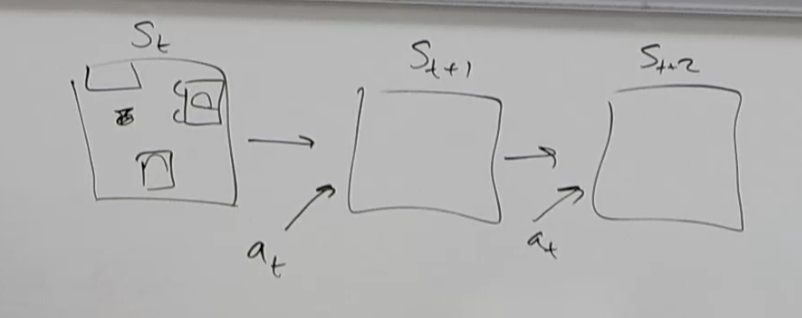 S_t
S_{t+1}
S_{t+2}
a_t
a_t